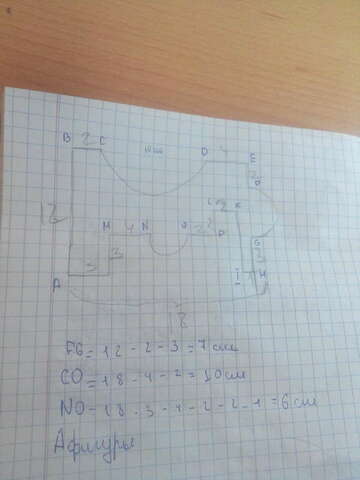 B 2 C D 4 E
2
12 M 4 N O 2 2
3 3
A
G
3
I H
1
18
FG = 12 - 2 - 3 = 7 см
CO = 18 - 4 - 2 = 10 см
NO - 18 - 3 - 4 - 2 - 2 - 1 = 6 см
Aфигуры